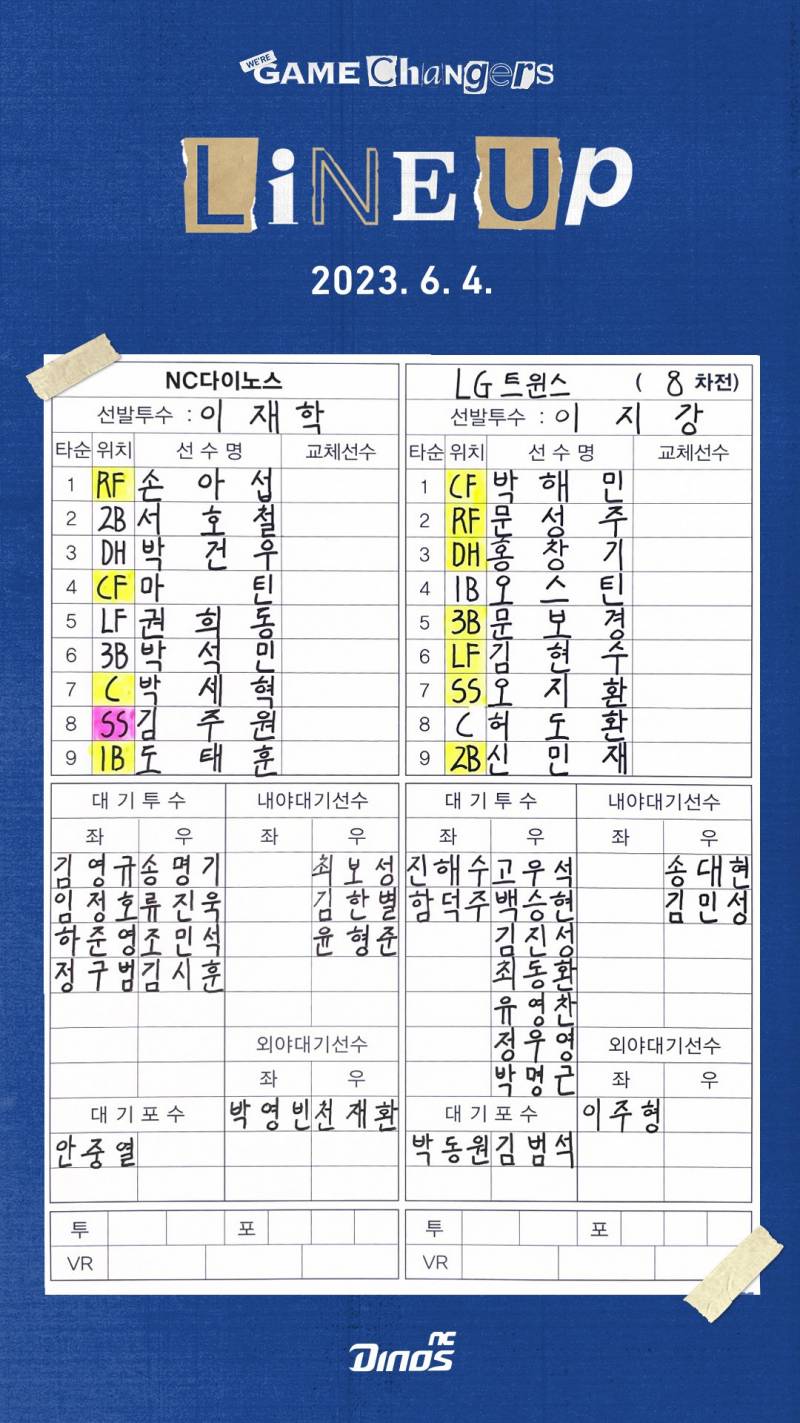 WE'RE GAME CHANGERS
LiNEUP
2023. 6. 4.
NC다이노스
선발투수 : 이재학
타순 위치 선수명 교체선수
1 RF 손아섭
2 2B 서호철
3 DH 박건우
4 CF 마틴
5 LF 권희동
6 3B 박석민
7 C 박세혁
8 SS 김주원
9 1B 도태훈
대기투수 내야대기선수
좌 우 좌 우
김영규 송명기 최보성
임정호 류진욱 김한별
하준영 조민석 윤형준
정구범 김시훈
외야대기선수
좌 우
대기포수 박영빈 천재환
안중열
투 포
VR
LG트윈스 ( 8 차전)
선발투수 : 이지강
타순 위치 선수명 교체선수
1 CF 박해민
2 RF 문성주
3 DH 홍창기
4 1B 오스틴
5 3B 문보경
6 LF 김현수
7 SS 오지환
8 C 허도환
9 2B 신민재
대기투수 내야대기선수
좌 우 좌 우
진해수 고우석 송대현
함덕주 백승현 김민성
김진성
최동환
유영찬
정우영 외야대기선수
박명근 좌 우
대기포수 이주형
박동원 김범석
투 포
VR
NC DINOS